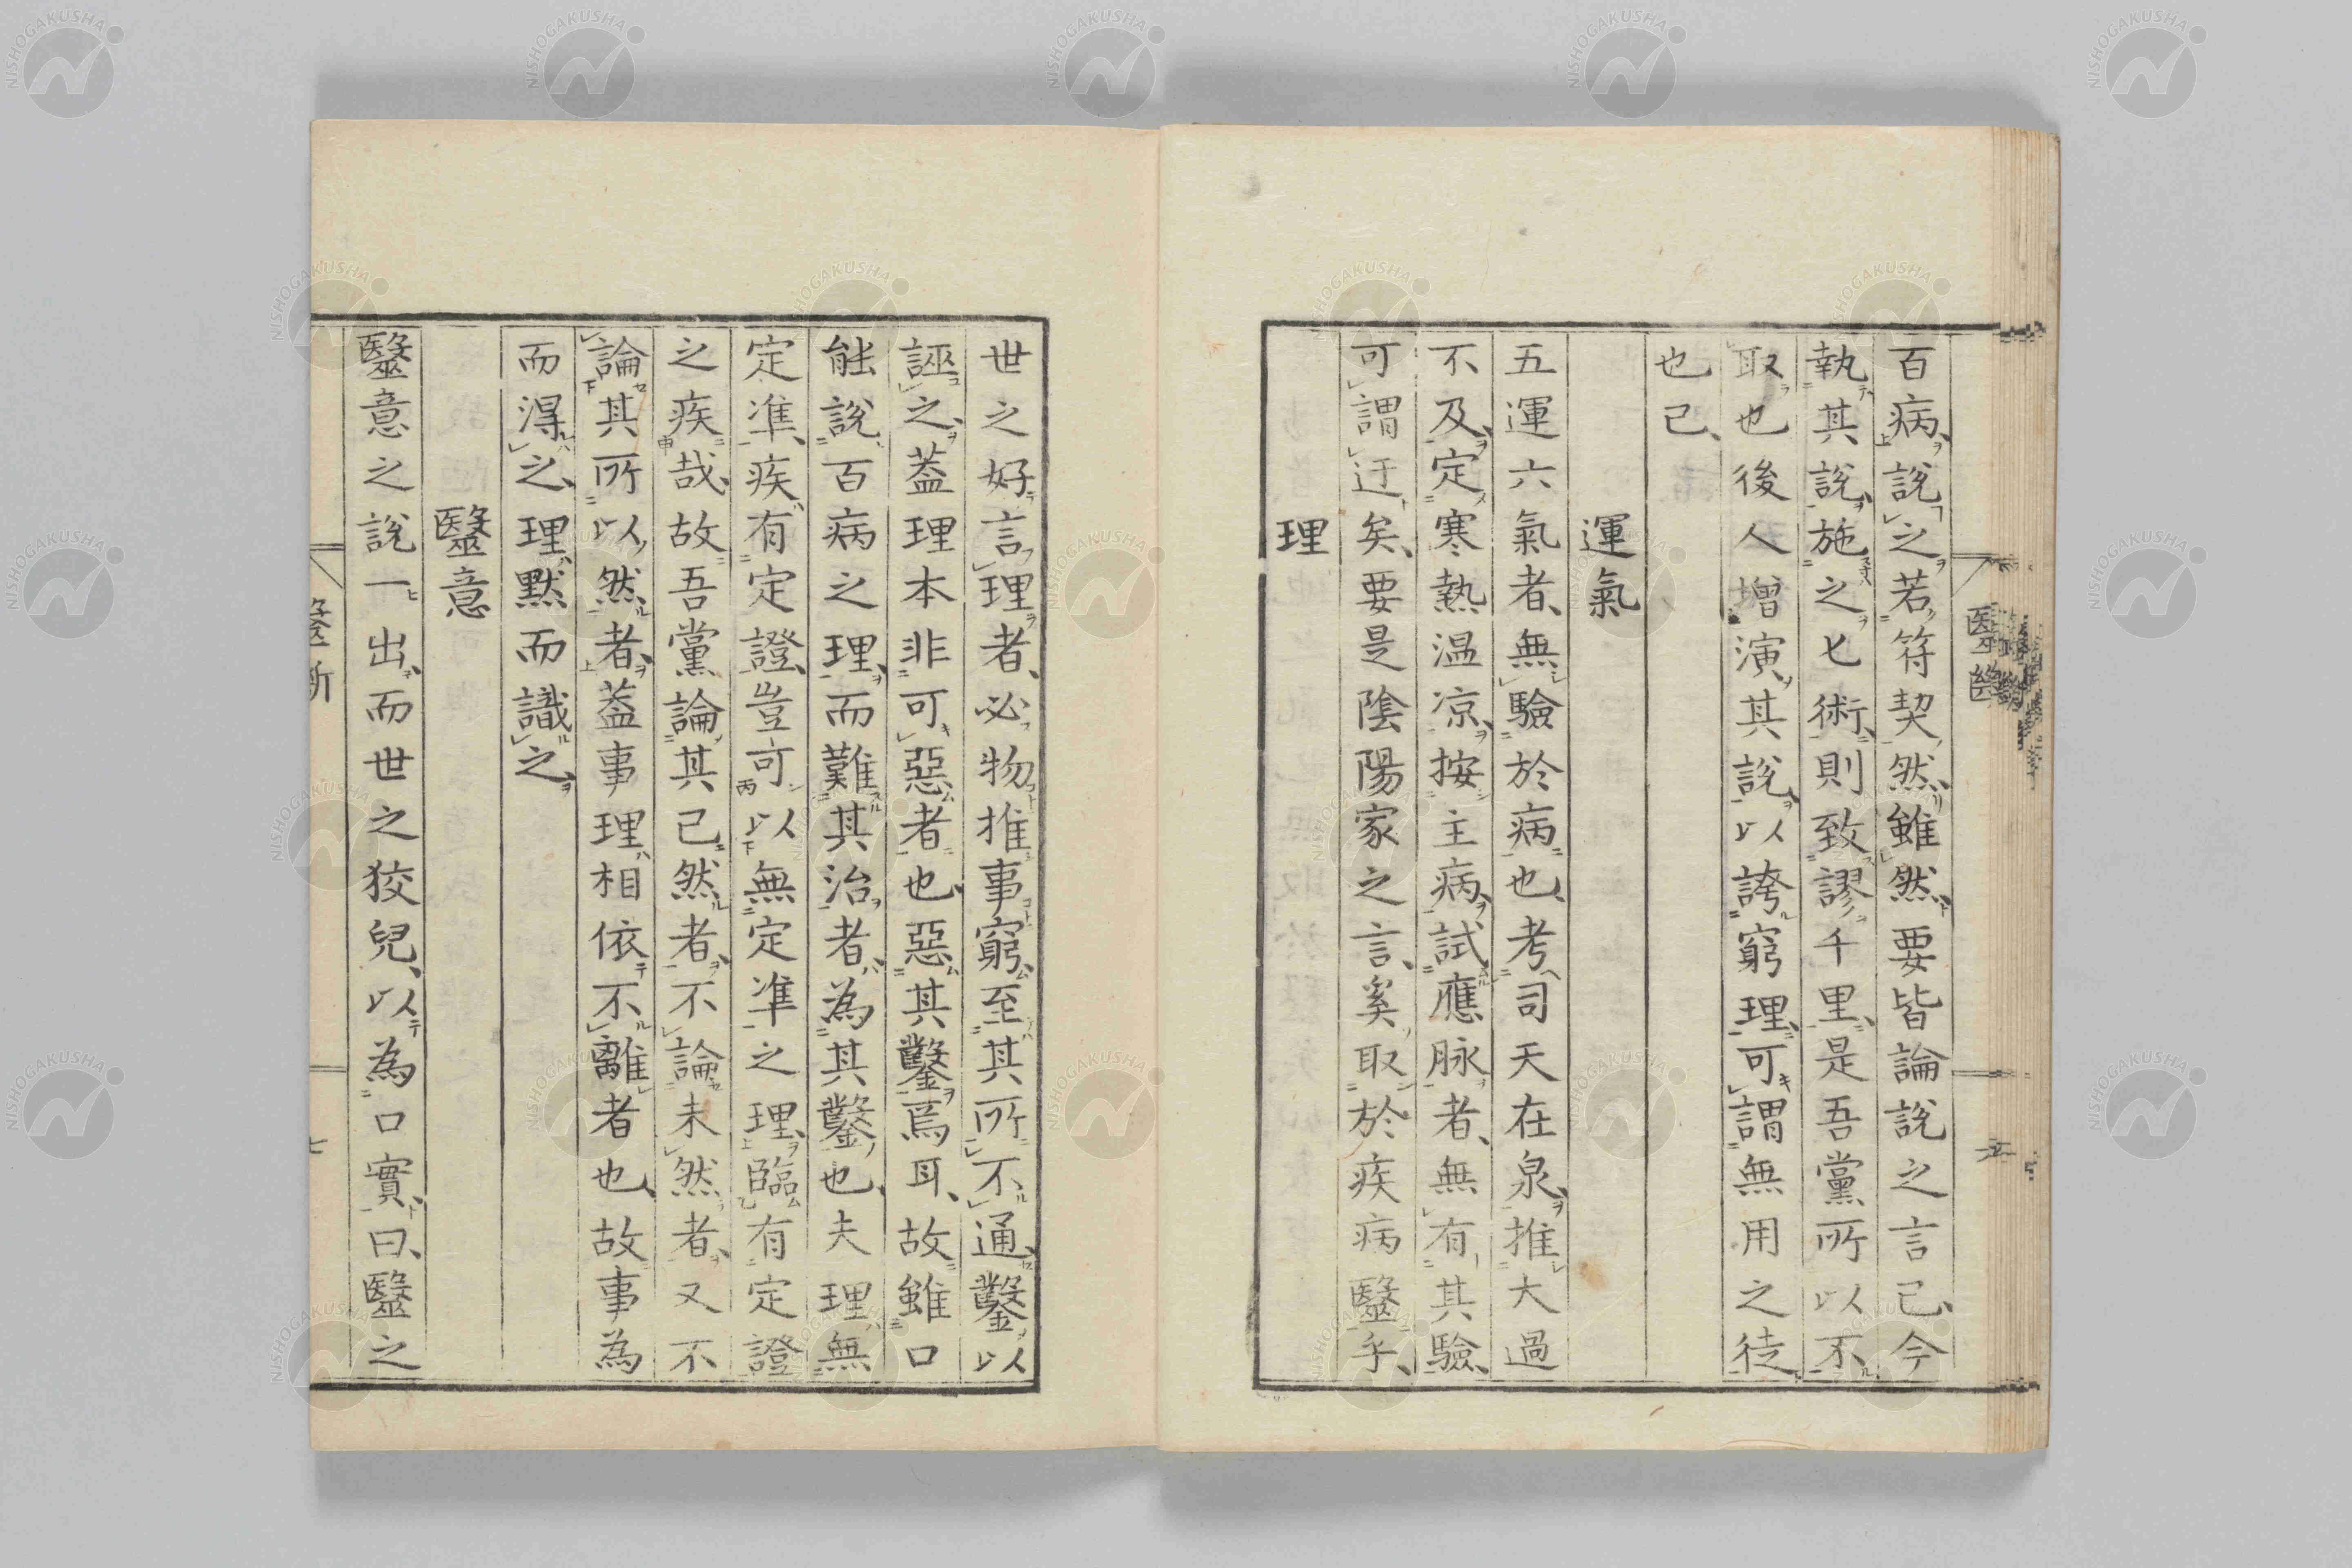 百病說之若符契然雖然要皆論說之言已今
執其說施之匕術則致謬千里是吾黨所以不
取也後人增演其說以誇窮理可謂無用之徒
也已
運氣
五運六氣者無驗於病也考司天在泉推大過
不及定寒熱温凉按主病試應脉者無有其驗
可謂迂矣要是陰陽家之言奚取於疾病毉乎
理
世之好言理者必物推事窮至其所不通鑿以
誣之葢理本非可惡者也惡其鑿焉耳故雖口
能說百病之理而難其治者為其鑿也夫理無
定凖疾有定證豈可以無定凖之理臨有定證
之疾哉故吾黨論其已然者不論未然者又不
論其所以然者葢事理相依不離者也故事為
而得之理默而識之
毉意
毉意之說一出而世之狡兒以為口實曰毉之
毉斷
七
NISHOGAKUSHA